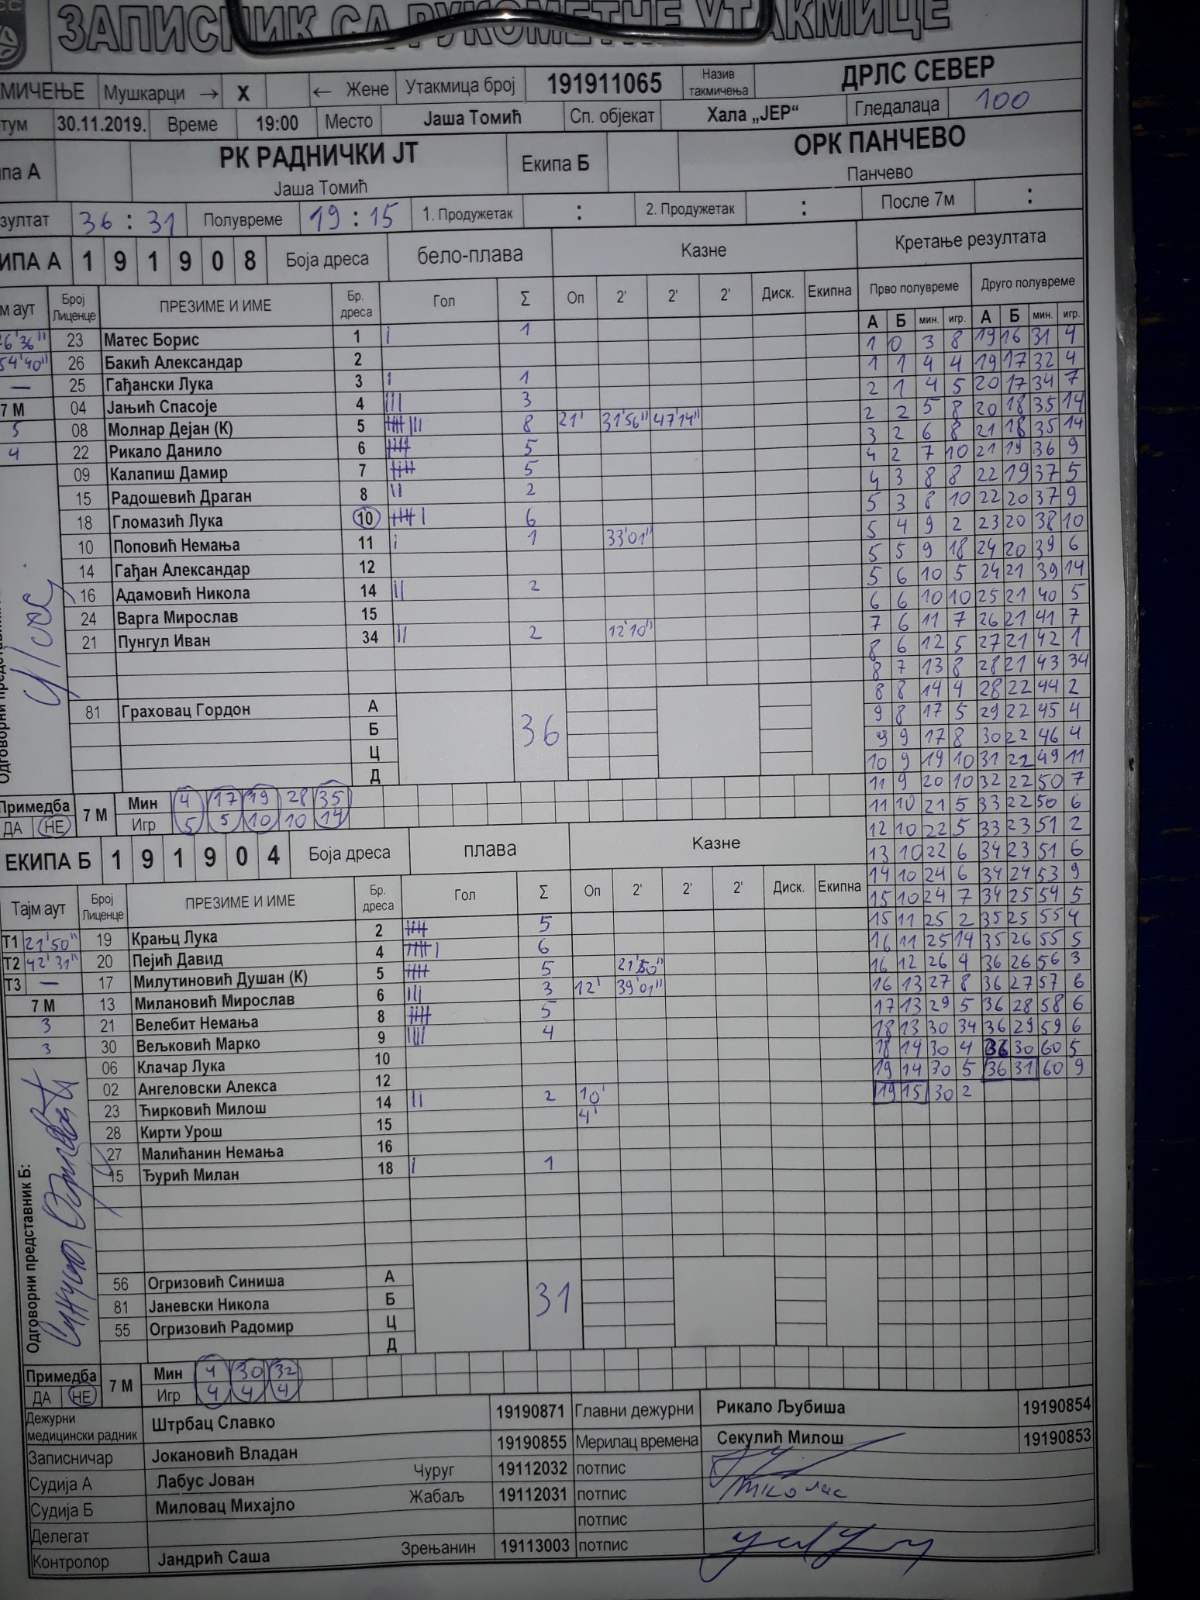 ЗАПИСНИК СА РУКОМЕТНЕ УТАКМИЦЕ
МИЧЕЊЕ Мушкарци → X ← Жене Утакмица број 191911065 Назив такмичења ДРЛС СЕВЕР
тум 30.11.2019. Време 19:00 Место Јаша Томић Сп. објекат Хала „ЈЕР“ Гледалаца 100
ипа А РК РАДНИЧКИ ЈТ Јаша Томић Екипа Б ОРК ПАНЧЕВО Панчево
зултат 36 : 31 Полувреме 19 : 15 1. Продужетак : 2. Продужетак : После 7м :
ИПА А 1 9 1 9 0 8 Боја дреса бело-плава Казне Кретање резултата
м аут Број Лиценце ПРЕЗИМЕ И ИМЕ Бр. дреса Гол Σ Оп 2' 2' 2' Диск. Екипна Прво полувреме Друго полувреме
А Б мин. игр. А Б мин. игр.
6'36" 23 Матес Борис 1 I 1
54'40" 26 Бакић Александар 2
— 25 Гађански Лука 3 I 1
7 М 04 Јањић Спасоје 4 III 3
5 08 Молнар Дејан (К) 5 IIIII III 8 21' 31'56" 47'14"
4 22 Рикало Данило 6 IIIII 5
09 Калапиш Дамир 7 IIIII 5
15 Радошевић Драган 8 II 2
18 Гломазић Лука 10 IIIII I 6
10 Поповић Немања 11 I 1 33'01"
14 Гађан Александар 12
16 Адамовић Никола 14 II 2
24 Варга Мирослав 15
21 Пунгул Иван 34 II 2 12'10"
81 Граховац Гордон А
Б
Ц
Д
36
Примедба ДА НЕ 7 М
Мин 4 17 19 28 35
Игр 5 5 10 10 14
1 0 3 8 19 16 31 4
1 1 4 4 19 17 32 4
2 1 4 5 20 17 34 7
2 2 5 8 20 18 35 14
3 2 6 8 21 18 35 14
4 2 7 10 21 19 36 9
4 3 8 8 22 19 37 5
5 3 8 10 22 20 37 9
5 4 9 2 23 20 38 10
5 5 9 18 24 20 39 6
5 6 10 5 24 21 39 14
6 6 10 10 25 21 40 5
7 6 11 7 26 21 41 7
8 6 12 5 27 21 42 1
8 7 13 8 28 21 43 34
8 8 14 4 28 22 44 2
9 8 17 5 29 22 45 4
9 9 17 8 30 22 46 4
10 9 19 10 31 22 49 11
11 9 20 10 32 22 50 7
11 10 21 5 33 22 50 6
12 10 22 5 33 23 51 2
13 10 22 6 34 23 51 6
14 10 24 6 34 24 53 9
15 10 24 7 34 25 54 5
15 11 25 2 35 25 55 4
16 11 25 14 35 26 55 5
16 12 26 4 36 26 56 3
16 13 27 8 36 27 57 6
17 13 29 5 36 28 58 6
18 13 30 34 36 29 59 6
18 14 30 4 36 30 60 5
19 14 30 5 36 31 60 9
19 15 30 2
ЕКИПА Б 1 9 1 9 0 4 Боја дреса плава Казне
Тајм аут Број Лиценце ПРЕЗИМЕ И ИМЕ Бр. дреса Гол Σ Оп 2' 2' 2' Диск. Екипна
Т1 21'50" 19 Крањц Лука 2 IIIII 5
Т2 42'31" 20 Пејић Давид 4 IIIII I 6
Т3 — 17 Милутиновић Душан (К) 5 IIIII 5 21'50"
7 М 13 Милановић Мирослав 6 III 3 12' 39'01"
3 21 Велебит Немања 8 IIIII 5
3 30 Вељковић Марко 9 IIII 4
06 Клачар Лука 10
02 Ангеловски Алекса 12
23 Ћирковић Милош 14 II 2 10'
28 Кирти Урош 15 4'
27 Малићанин Немања 16
15 Ђурић Милан 18 I 1
Одговорни представник Б:
56 Огризовић Синиша А
81 Јаневски Никола Б
55 Огризовић Радомир Ц
Д
31
Примедба ДА НЕ 7 М
Мин 4 30 32
Игр 4 4 4
Дежурни медицински радник Штрбац Славко 19190871 Главни дежурни Рикало Љубиша 19190854
Записничар Јокановић Владан 19190855 Мерилац времена Секулић Милош 19190853
Судија А Лабус Јован Чуруг 19112032 потпис
Судија Б Миловац Михајло Жабаљ 19112031 потпис
Делегат потпис
Контролор Јандрић Саша Зрењанин 19113003 потпис